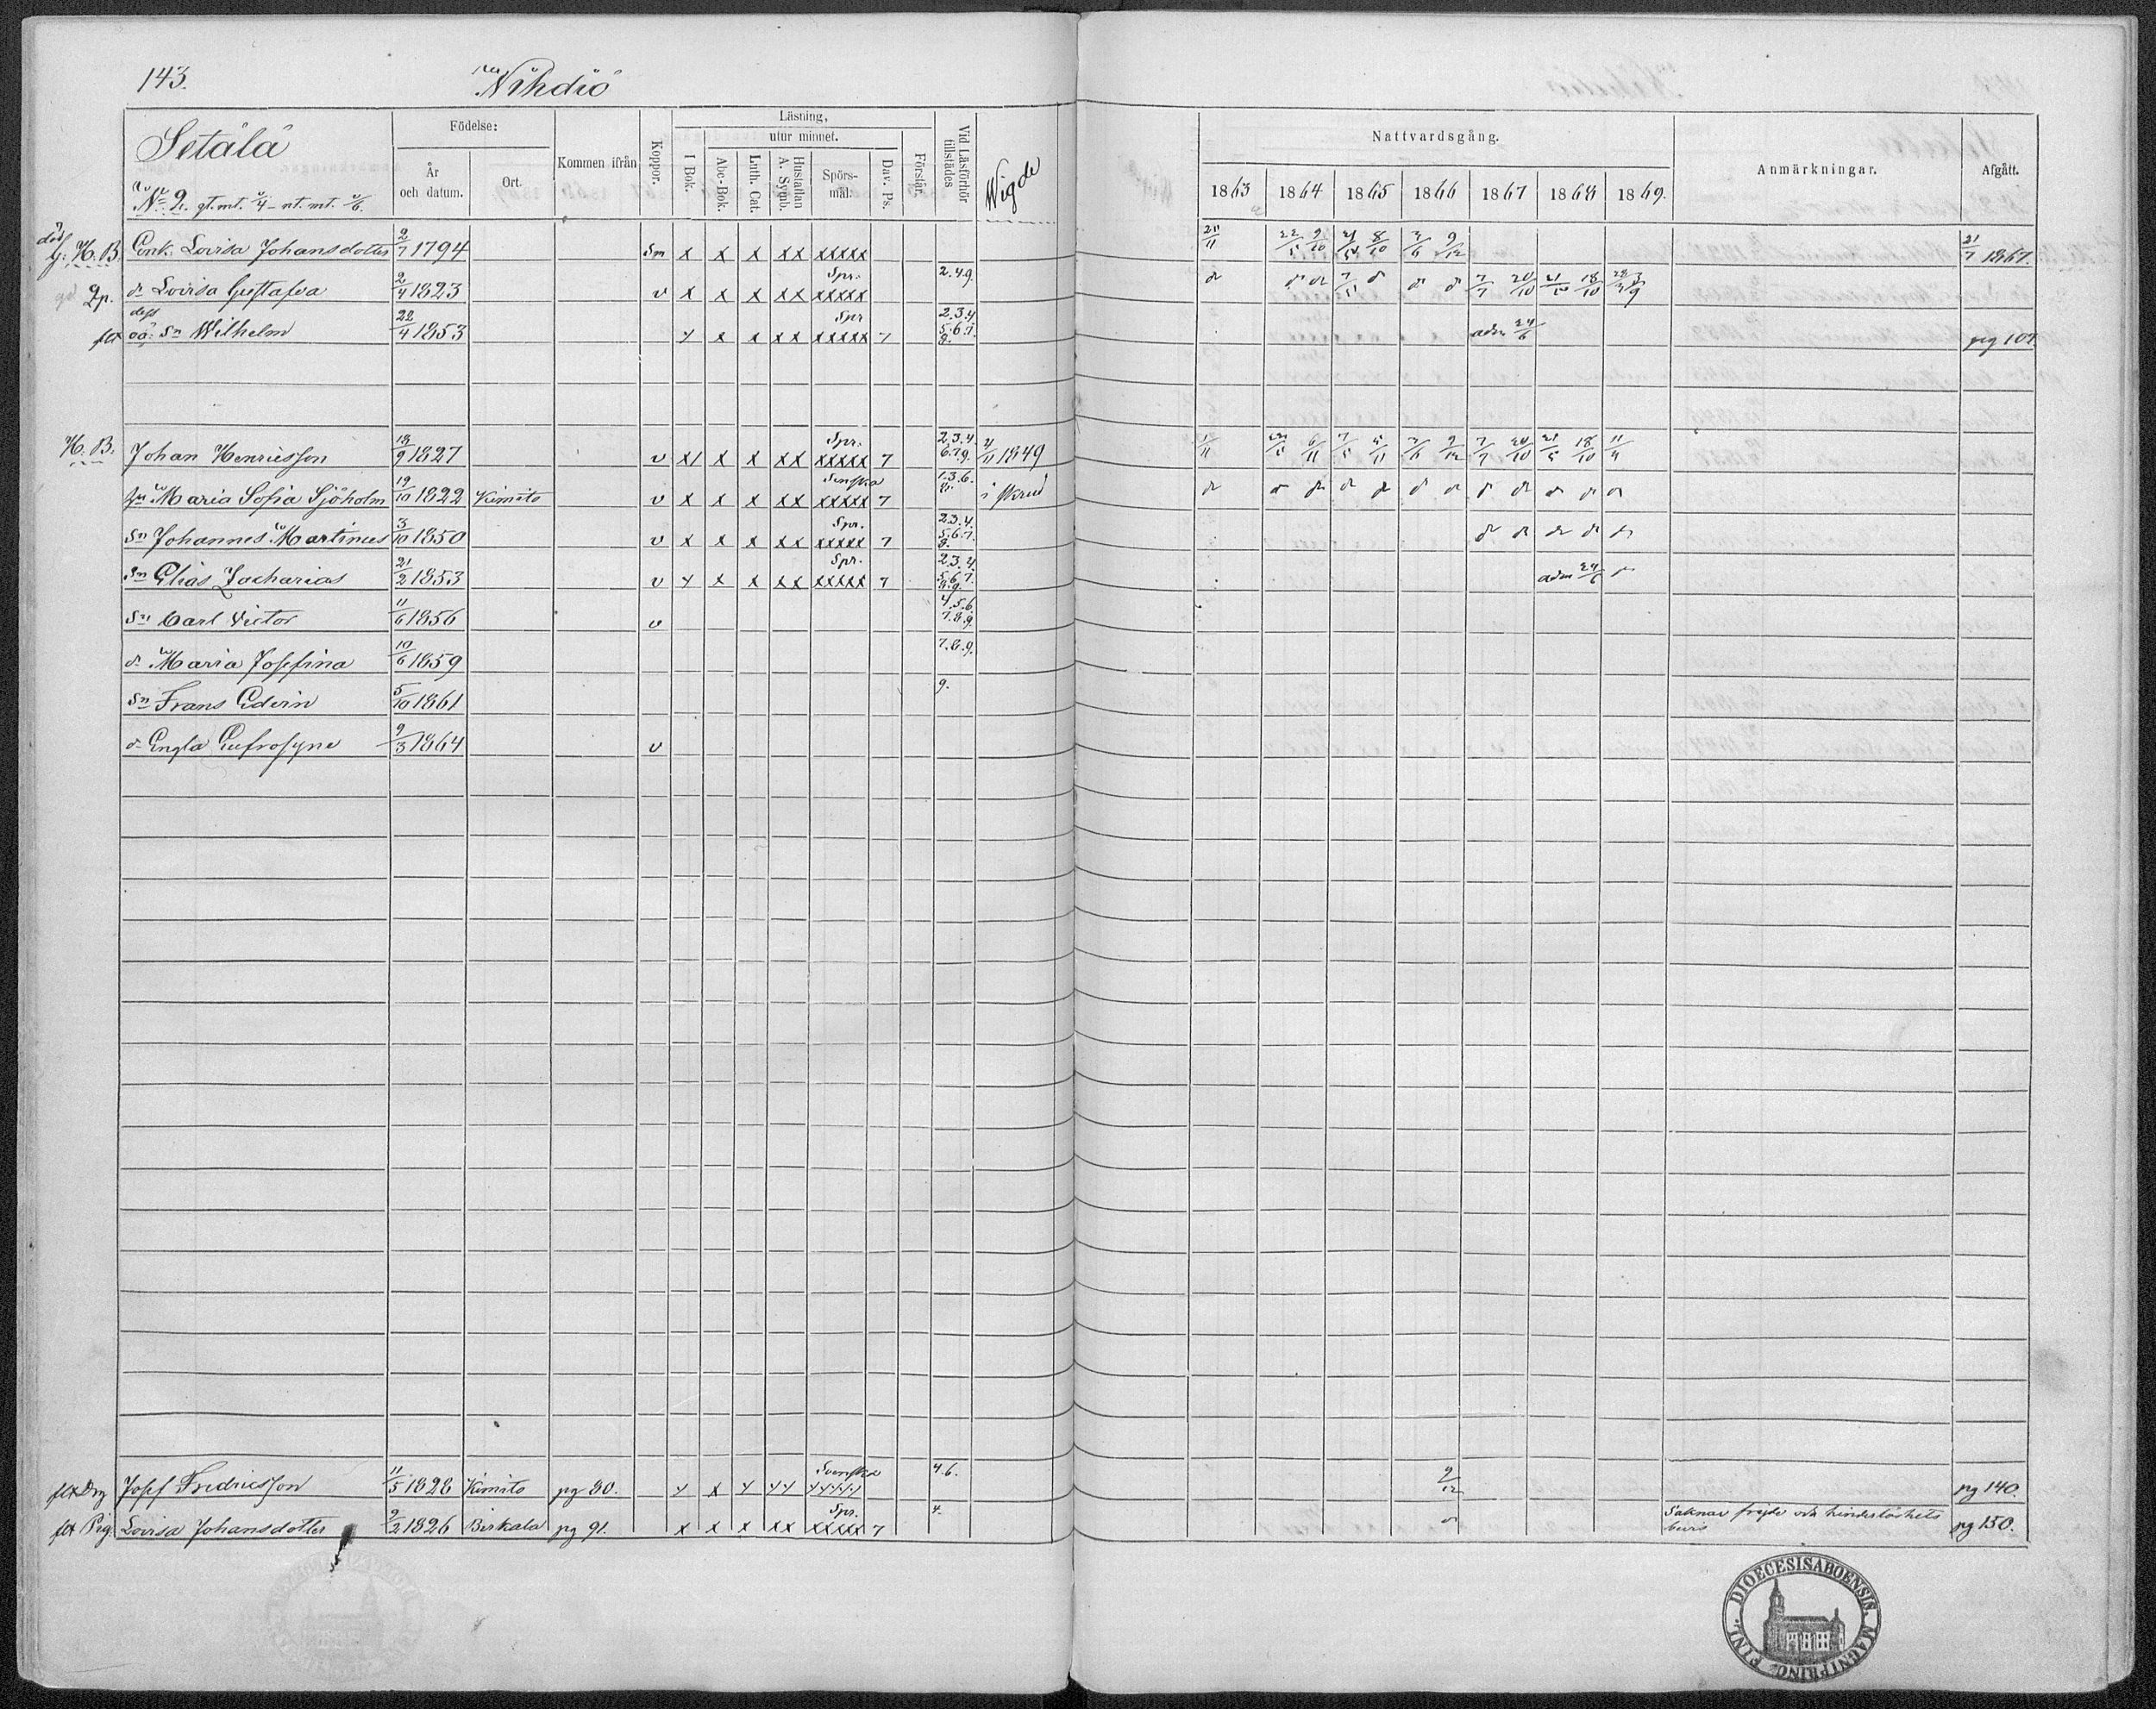 143. Nihdiö
Setälä
No 2. gt. mt. 1/4 - nt. mt. 1/6.
Födelse:
År och datum.
Ort.
Kommen ifrån
Koppor.
Läsning,
utur minnet.
I Bok.
Abc-Bok.
Luth. Cat.
Hustaflan A. Symb.
Spörsmål.
Dav. Ps.
Förstår.
Vid Läsförhör tillstädes
Wigde
Nattvardsgång.
1863 1864 1865 1866 1867 1868 1869.
Anmärkningar.
Afgått.
död H. B. Enk. Lovisa Johansdotter 2/7 1794 Sm x x x xx xxxxx 21/11 2/6 9/12 21/7 1867.
2p. dr Lovisa Gustafva 2/4 1823 v x x x xx Spr. xxxxx 2.4.9. dr
flt dess oä: Sn Wilhelm 22/4 1853 x x x xx Spr xxxxx 7 2.3.4 5.6.7. 8. adm 24/6 pag 107.
H. B. Johan Henricsson 18/9 1827 v x x x xx Spr. xxxxx 7 2.3.4 6.7.9. 4/11 1849
hu Maria Sofia Sjöholm 19/10 1822 Kimito v x x x xx Svenska xxxxx 7 1.3.6. 8.
Sn Johannes Martinus 3/10 1850 v x x x xx Spr. xxxxx 7 2.3.4. 5.6.7. 8.
Sn Elias Zacharias 21/2 1853 v x x x xx Spr. xxxxx 7 2.3.4. 5.6.7. 8.9. adm 24/6
Sn Carl Victor 11/6 1856 v 4.5.6. 7.8.9.
dr Maria Josefina 10/6 1859 7.8.9.
Sn Frans Edvin 5/10 1861 9.
dr Engla Eufrosyne 9/3 1864 v
flt Drg Josef Fredricsson 11/5 1828 Kimito pg 80. x x x xx Svenska xxxxx 4.6. 9/12 pg 140.
flt Pig. Lovisa Johansdotter 9/2 1826 Birkala pg 91. x x x xx Spr. xxxxx 7 4. Saknar frejde och hinderlöshets bevis pg 150.
DIOECESIS ABOENSIS. MAGNI PRINC. FINL.